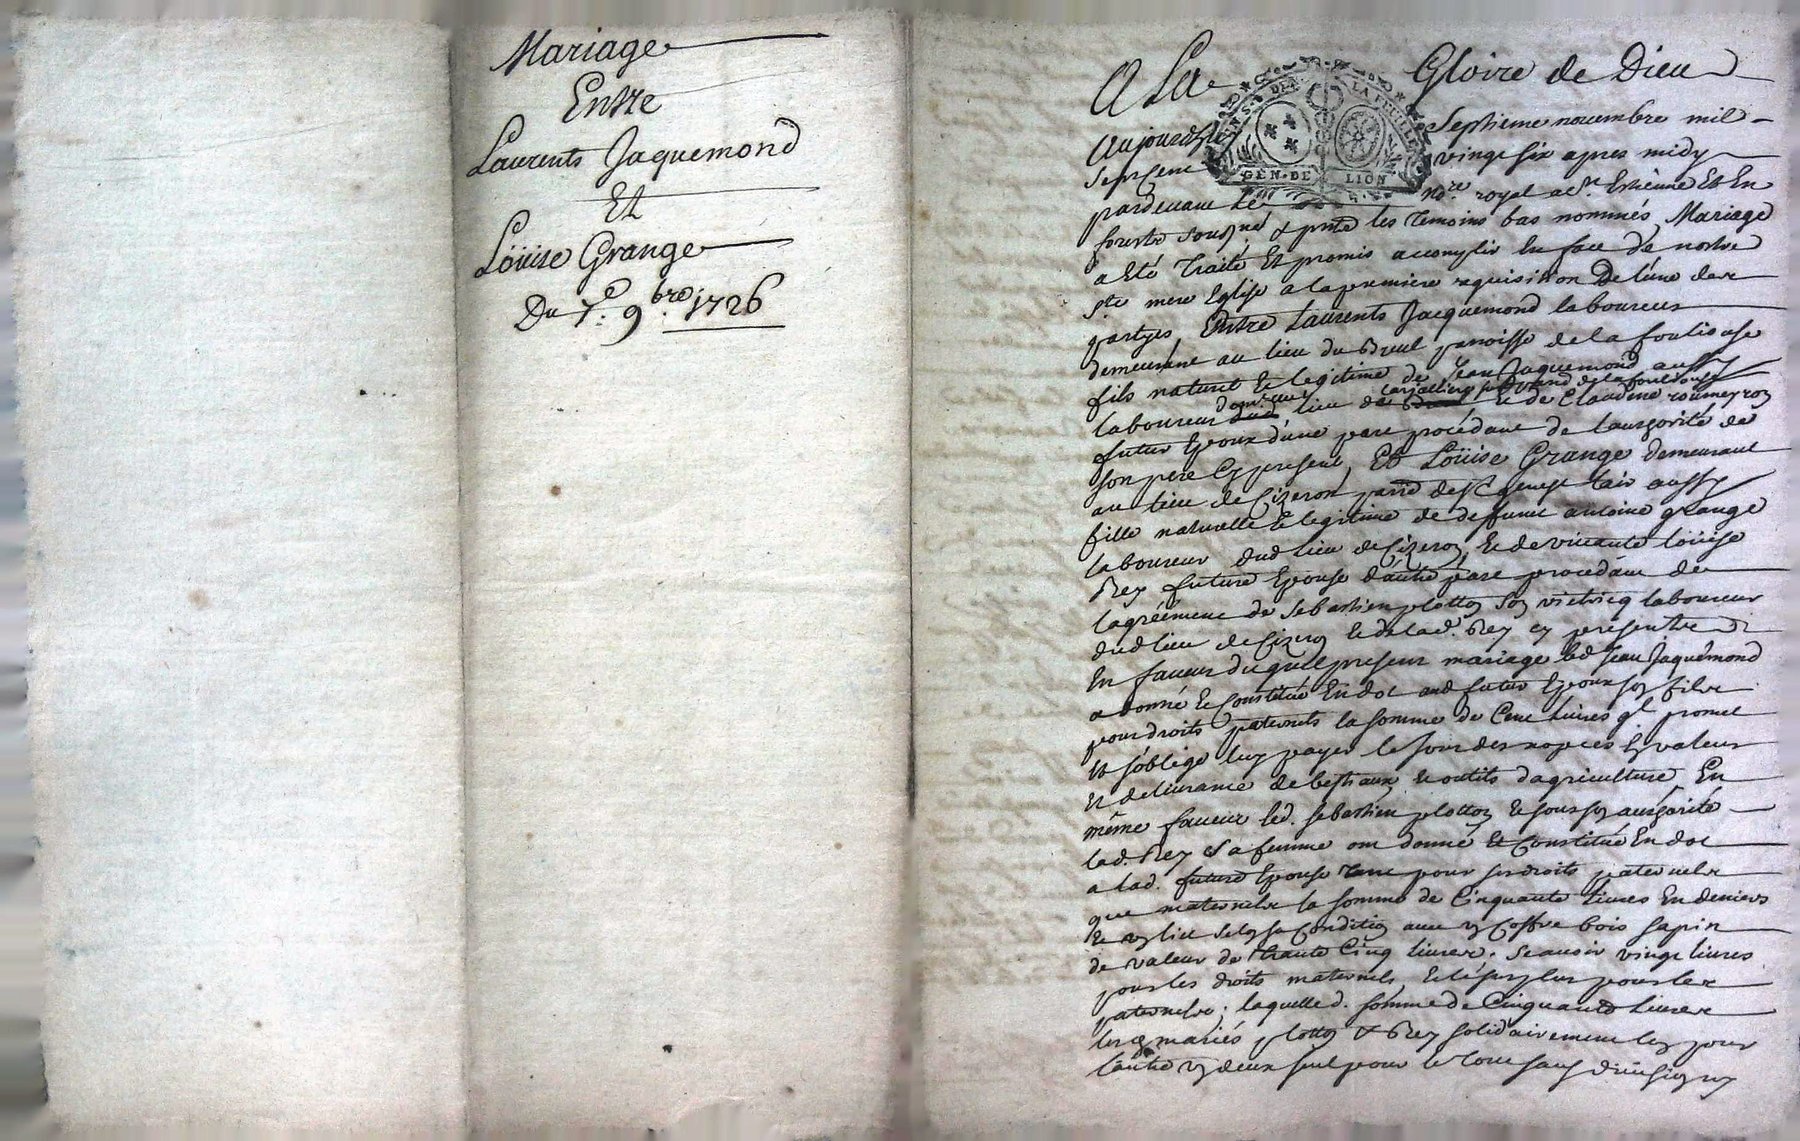 Mariage
Entre
Laurents Jaquemond
Et
Loüise Grange
Du 7e. 9bre. 1726
A La Gloire de Dieu
LA FEUILLE
GEN. DE LION
Aujourdhuy Septieme novembre mil
Sept Cent vingt six apres midy
pardevant Le no.re royal a St. Estienne Et En
forests sousigné & pnts les temoins bas nommés, Mariage
a Eté Traité Et promis accomplir En face de nostre
Ste mere Eglise a la premiere requisition De l'une des
partyes, Entre Laurents Jacquemond laboureur
demeurant au lieu du Breul paroisse de la fouliouse
fils naturel & legitime de Jean Jaquemond aussy
laboureur lieu de & de Claudine roumeyron
futur Epoux d'une part procédant de l'authorité de
son père Cy present, Et Loüise Grange demeurant
au lieu de Cizeron parr. de St genest lair aussy
fille naturelle & legitime de deffunt antoine grange
laboureur dud lieu de Cizeron, & de vivante loüise
Rey future Epouse d'autre part procedant de
lagréement de Sebastien plotton Son laboureur
dud lieu de Cizeron & de lad. Rey cy présents
En faveur duquel present mariage led Jean Jaquémond
a donné & Constitué En dot aud futur Epoux son fils
pour droits paternels la somme de Cent Livres ql promet
Et s'oblige luy payer le jour des nopces En valeur
Et delivrance de bestiaux & outils dagriculture En
même faveur led. Sebastien plotton & sous son authorité
lad. Rey Sa femme ont donné & Constitué En dot
a lad. future Epouse tant pour ses droits paternels
que maternels la somme de Cinquante Livres En deniers
& un lict Selon sa Condition avec un Coffre bois sapin
de valeur de trante Cinq livres, Scavoir vingt livres
pour les droits maternels & le surplus pour les
paternels; laquelle d. somme de Cinquante Livres
les mariés plotton & Rey solidairement lun pour
l'autre un deux seul pour le tout sans division